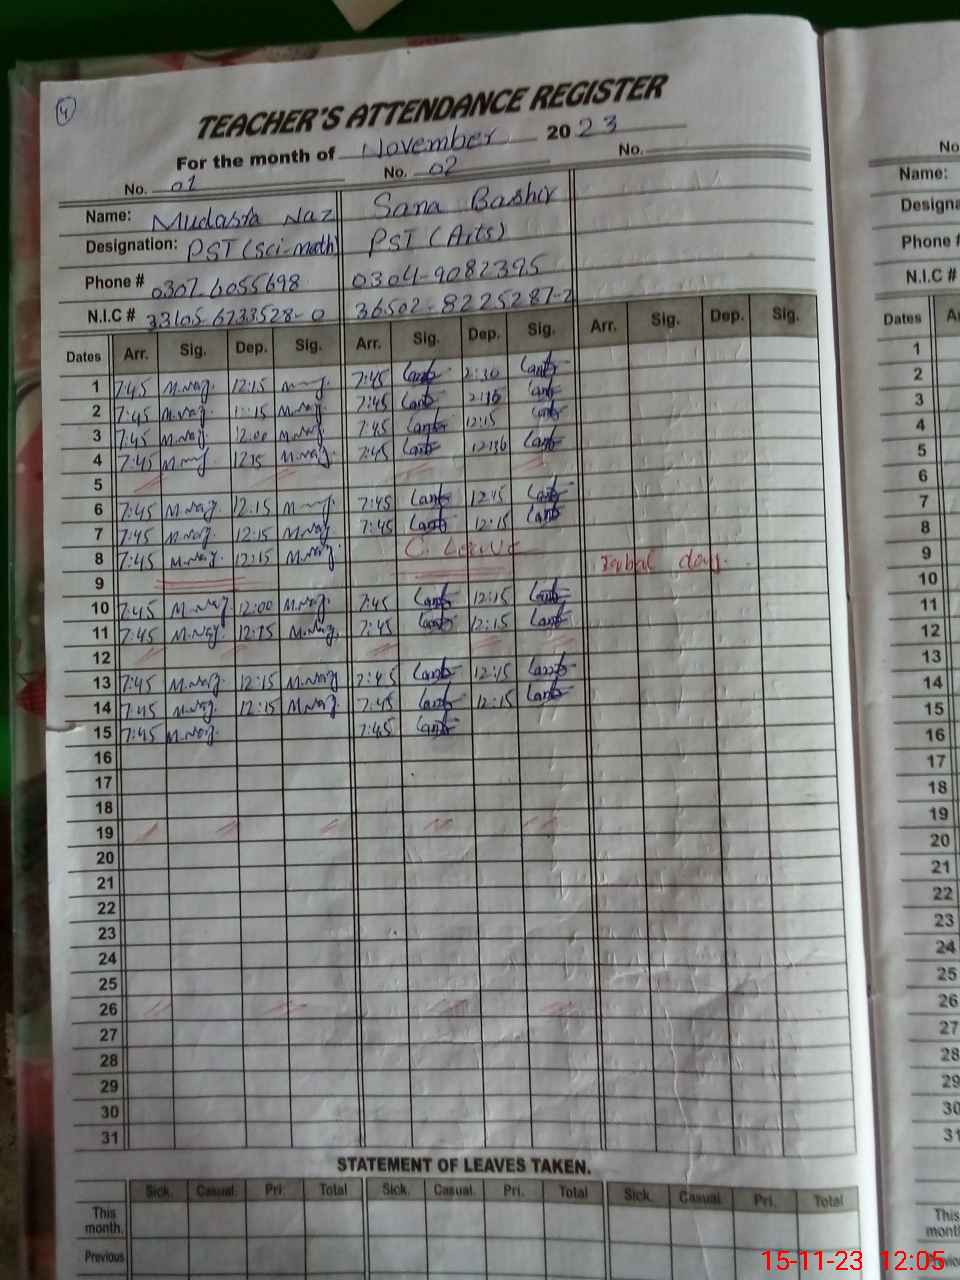 4
TEACHER'S ATTENDANCE REGISTER
For the month of November 2023
No. 01 No. 02 No.
Name: Mudasra Naz Sana Bashir
Designation: PST (Sci-math) PST (Arts)
Phone # 0307-6055698 0304-9082395
N.I.C # 33105-6733528-0 36502-8225287-2
Dates Arr. Sig. Dep. Sig. Arr. Sig. Dep. Sig. Arr. Sig. Dep. Sig.
1 7:45 M.Naz. 12:15 7:45 2:30
2 7:45 M.Naz. M.Naz. 7:45
3 7:45 M.Naz. 12:00 M.Naz. 7:45 12:15
4 7:45 M.Naz. 7:45
5
6 7:45 M.Naz. 12:15 7:45 12:15
7 7:45 M.Naz. 12:15 M.Naz. 7:45 12:15
8 7:45 M.Naz. 12:15 M.Naz. C. Leave
9 Iqbal day.
10 7:45 M.Naz. 12:00 M.Naz. 7:45 12:15
11 7:45 M.Naz. 12:15 M.Naz. 7:45 12:15
12
13 7:45 M.Naz. 12:15 M.Naz 7:45 12:15
14 7:45 M.Naz. 12:15 M.Naz. 7:45 12:15
15 7:45 M.Naz. 7:45
16
17
18
19
20
21
22
23
24
25
26
27
28
29
30
31
STATEMENT OF LEAVES TAKEN.
Sick. Casual. Pri. Total Sick. Casual. Pri. Total Sick. Casual. Pri. Total
This month.
Previous
No
Name:
Designa
Phone #
N.I.C #
Dates A
1
2
3
4
5
6
7
8
9
10
11
12
13
14
15
16
17
18
19
20
21
22
23
24
25
26
27
28
29
30
31
This
month
15-11-23 12:05